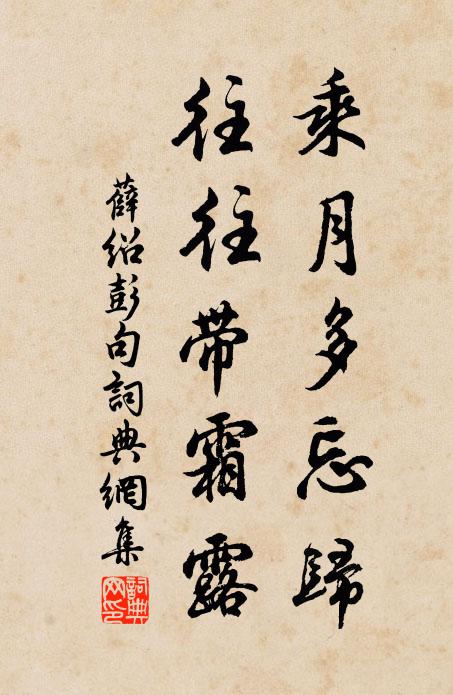 乘月多忘歸
往往帶霜露
薛紹彭句詞典網集
詞典网印